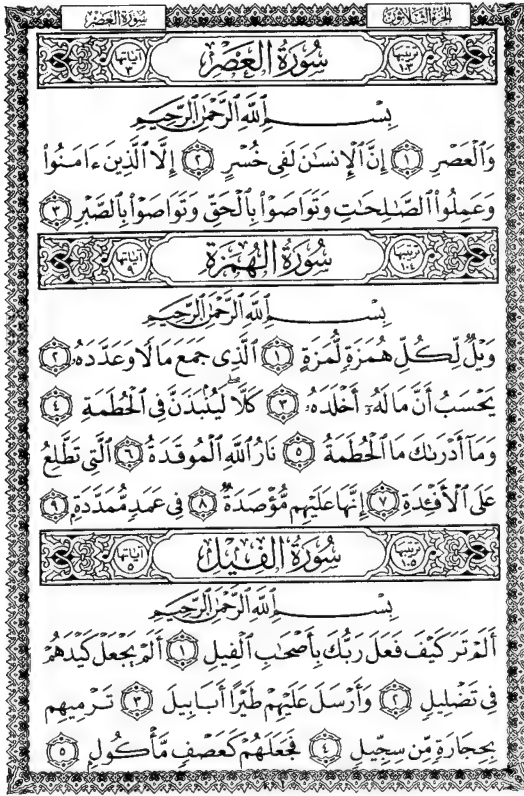 سُورَةُ العَصْرِ الجُزْءُ الثَّلَاثُونَ
ترتيبها ١٠٣ سُورَةُ العَصْرِ آياتها ٣
بِسْمِ ٱللَّهِ ٱلرَّحْمَٰنِ ٱلرَّحِيمِ
وَٱلْعَصْرِ ١ إِنَّ ٱلْإِنسَٰنَ لَفِى خُسْرٍ ٢ إِلَّا ٱلَّذِينَ ءَامَنُوا۟
وَعَمِلُوا۟ ٱلصَّٰلِحَٰتِ وَتَوَاصَوْا۟ بِٱلْحَقِّ وَتَوَاصَوْا۟ بِٱلصَّبْرِ ٣
ترتيبها ١٠٤ سُورَةُ الهُمَزَةِ آياتها ٩
بِسْمِ ٱللَّهِ ٱلرَّحْمَٰنِ ٱلرَّحِيمِ
وَيْلٌ لِّكُلِّ هُمَزَةٍ لُّمَزَةٍ ١ ٱلَّذِى جَمَعَ مَالًا وَعَدَّدَهُۥ ٢
يَحْسَبُ أَنَّ مَالَهُۥٓ أَخْلَدَهُۥ ٣ كَلَّا ۖ لَيُنۢبَذَنَّ فِى ٱلْحُطَمَةِ ٤
وَمَآ أَدْرَىٰكَ مَا ٱلْحُطَمَةُ ٥ نَارُ ٱللَّهِ ٱلْمُوقَدَةُ ٦ ٱلَّتِى تَطَّلِعُ
عَلَى ٱلْأَفْـِٔدَةِ ٧ إِنَّهَا عَلَيْهِم مُّؤْصَدَةٌ ٨ فِى عَمَدٍ مُّمَدَّدَةٍۭ ٩
ترتيبها ١٠٥ سُورَةُ الفِيلِ آياتها ٥
بِسْمِ ٱللَّهِ ٱلرَّحْمَٰنِ ٱلرَّحِيمِ
أَلَمْ تَرَ كَيْفَ فَعَلَ رَبُّكَ بِأَصْحَٰبِ ٱلْفِيلِ ١ أَلَمْ يَجْعَلْ كَيْدَهُمْ
فِى تَضْلِيلٍ ٢ وَأَرْسَلَ عَلَيْهِمْ طَيْرًا أَبَابِيلَ ٣ تَرْمِيهِم
بِحِجَارَةٍ مِّن سِجِّيلٍ ٤ فَجَعَلَهُمْ كَعَصْفٍ مَّأْكُولٍۭ ٥